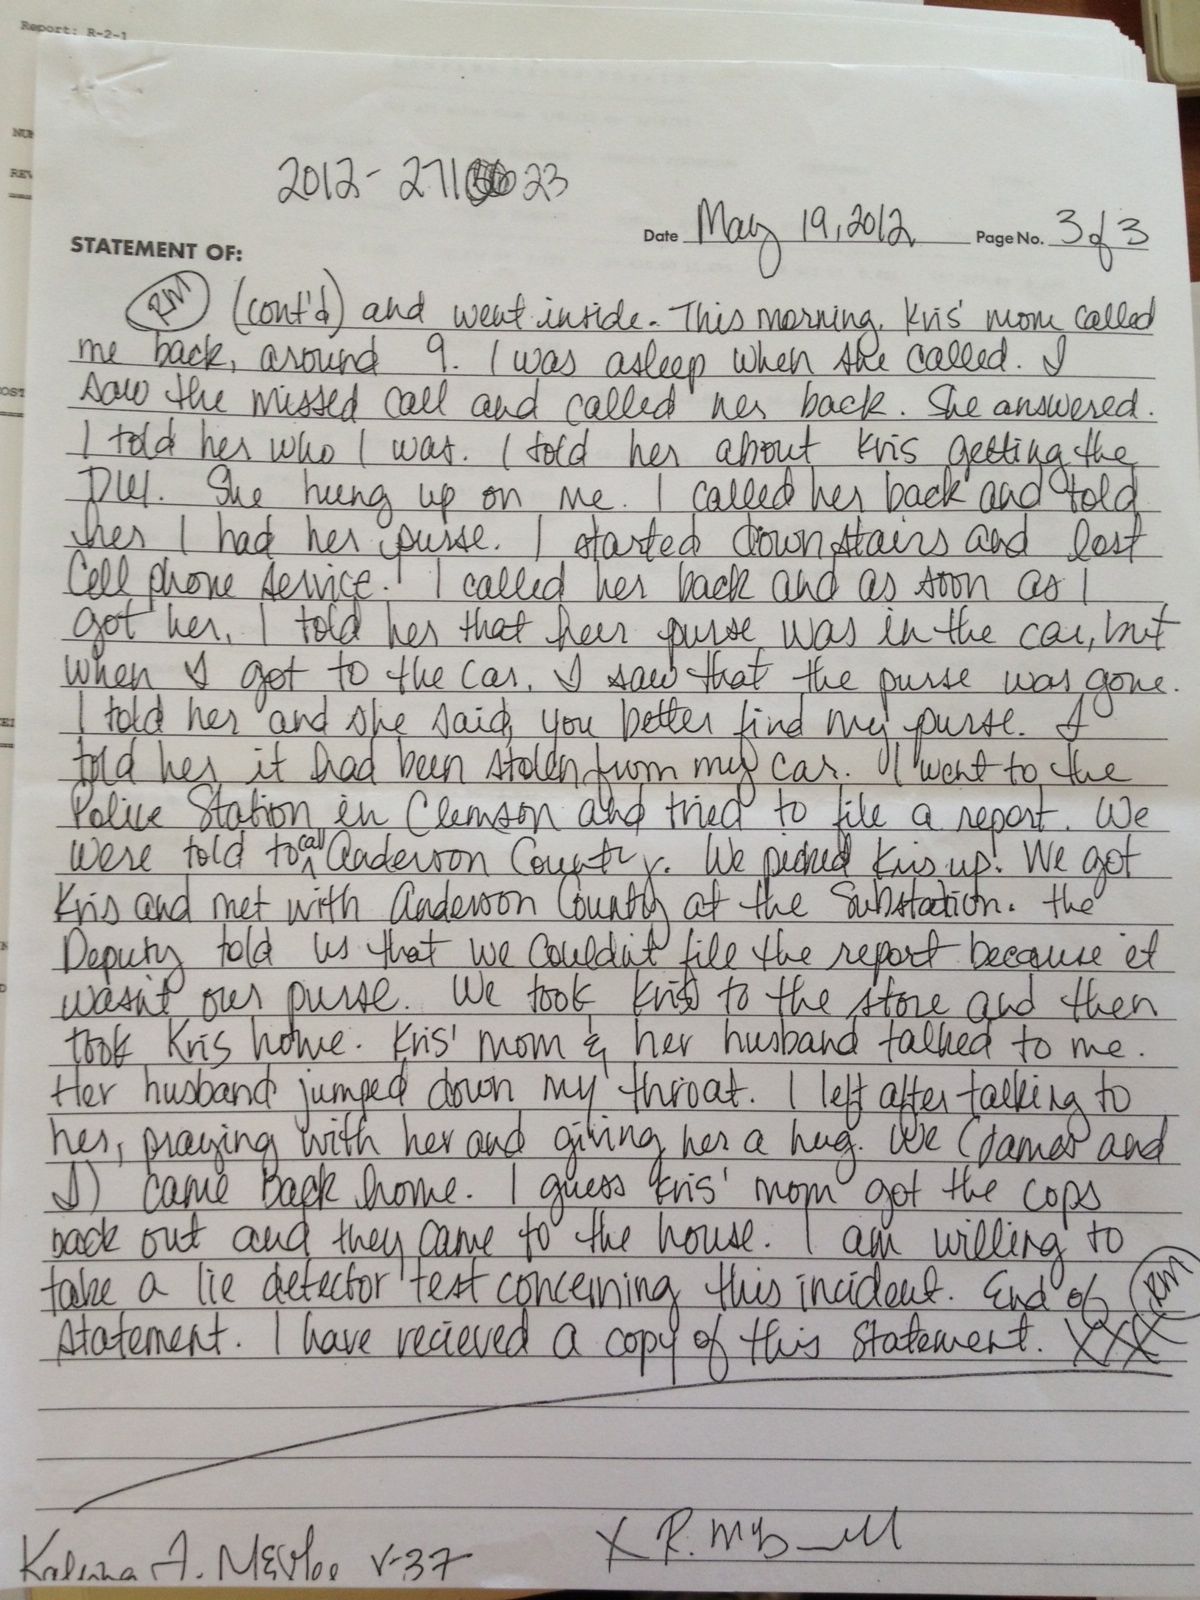 Report: R-2-1
2012- 271 23
Date May 19, 2012 Page No. 3 of 3
STATEMENT OF:
RM (cont'd) and went inside. This morning, Kris' mom called
me back, around 9. I was asleep when she called. I
saw the missed call and called her back. She answered.
I told her who I was. I told her about Kris getting the
DUI. She hung up on me. I called her back and told
her I had her purse. I started downstairs and lost
Cell phone service. I called her back and as soon as I
got her, I told her that her purse was in the car, but
when I got to the car, I saw that the purse was gone.
I told her and she said, you better find my purse. I
told her it had been stolen from my car. I went to the
Police Station in Clemson and tried to file a report. We
were told to call Anderson County. We picked Kris up. We got
Kris and met with Anderson County at the Substation. the
Deputy told us that we couldn't file the report because it
wasn't our purse. We took Kris to the store and then
took Kris home. Kris' mom & her husband talked to me.
Her husband jumped down my throat. I left after talking to
her, praying with her and giving her a hug. We (James and
I) came back home. I guess Kris' mom got the cops
back out and they came to the house. I am willing to
take a lie detector test concerning this incident. End of RM
statement. I have recieved a copy of this statement. XXX
V-37
X R.